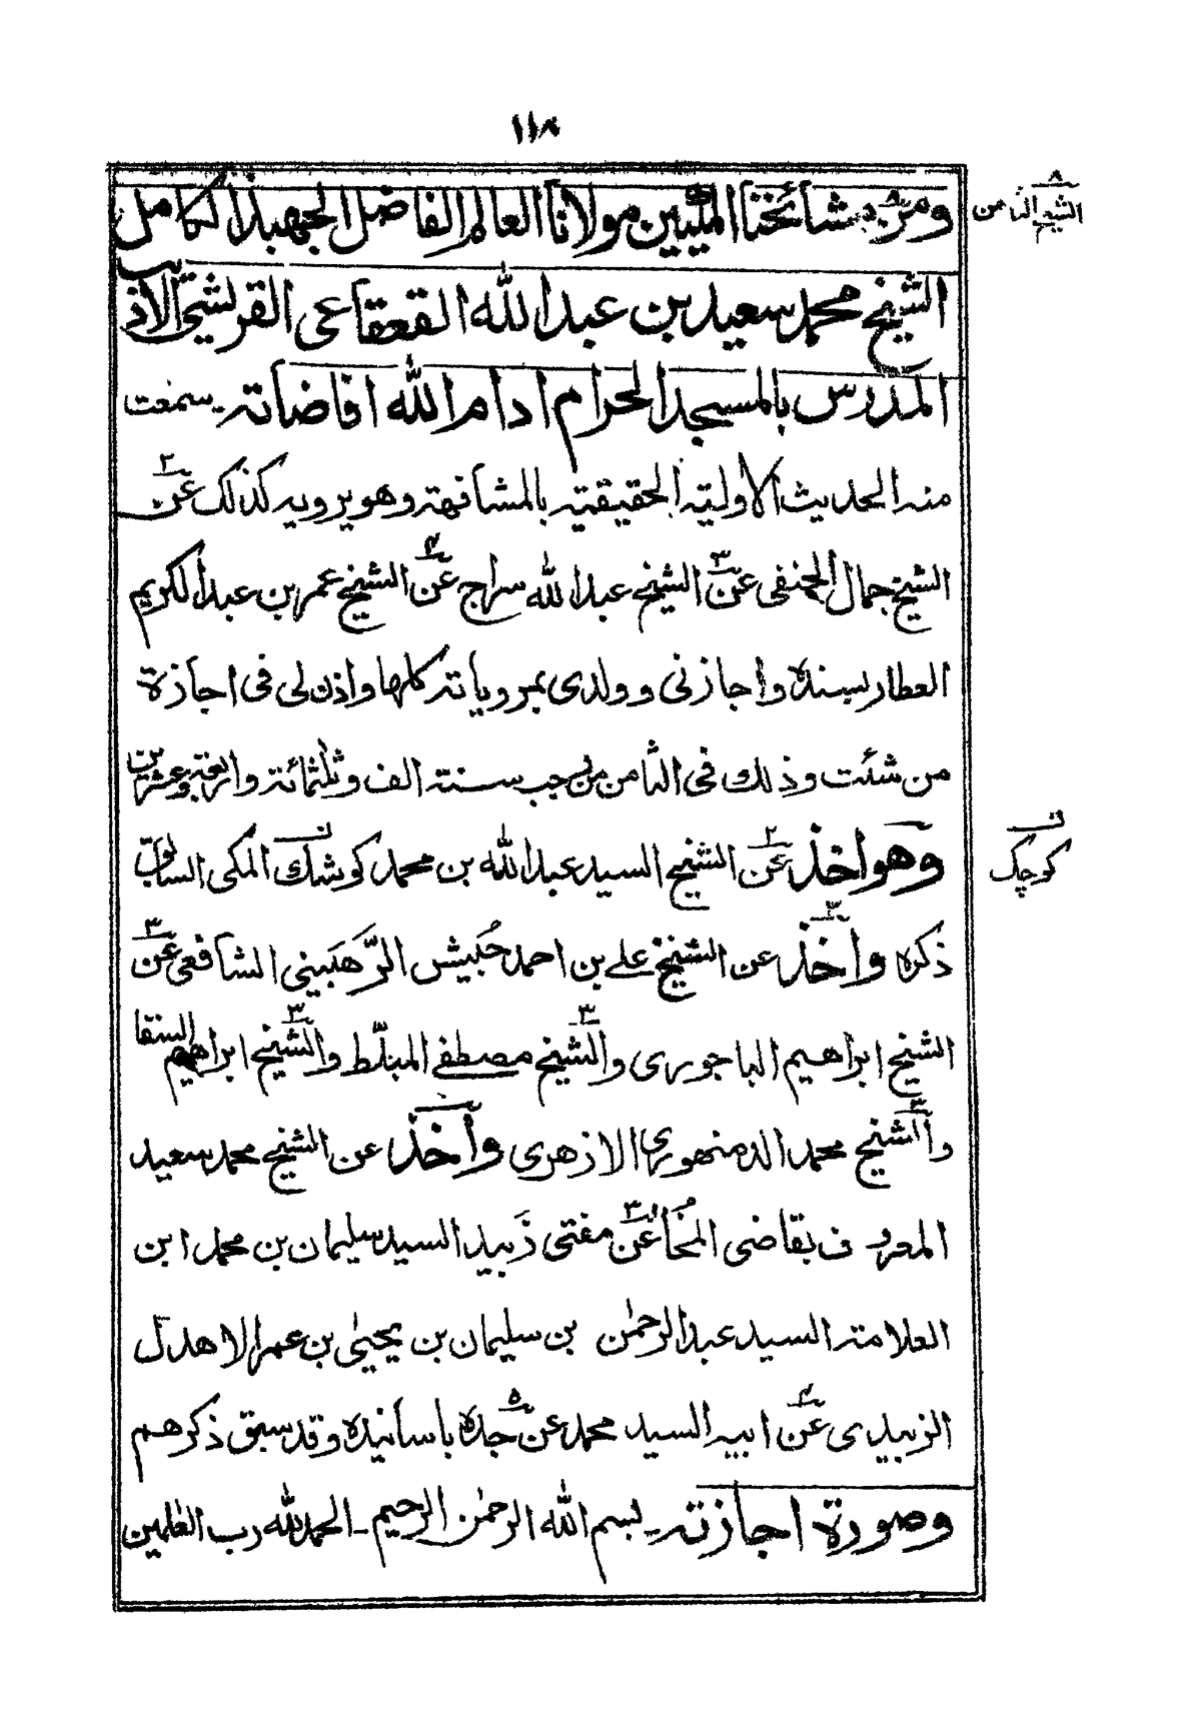 ١١٨
ومن مشائخنا المكيين مولانا العالم الفاضل الجهبذ الكامل
الشيخ الثامن
الشيخ محمد سعيد بن عبد الله القعقاعى القريشى الاديب
المدرس بالمسجد الحرام ادام الله افاضاته۔ سمعت
منه الحديث الاولية الحقيقية بالمشافهة وهو يرويه كذلك عن
الشيخ جمال الحنفى عن الشيخ عبد الله سراج عن الشيخ عمر بن عبد الكريم
العطار بسنده واجازنى وولدى بمروياته كلها واذن لى فى اجازة
من شئت وذلك فى الثامن من رجب سنة الف وثلثمائة واربعة وعشرين
وهو اخذ عن الشيخ السيد عبد الله بن محمد كوشك المكى السابق
كوچك
ذكره واخذ عن الشيخ على بن احمد حُبيش الرَّهَبينى الشافعى عن
الشيخ ابراهيم الباجورى والشيخ مصطفى المبلّط والشيخ ابراهيم السقا
والشيخ محمد الدمنهورى الازهرى واخذ عن الشيخ محمد سعيد
المعروف بقاضى المُخَا عن مفتى زَبيد السيد سليمان بن محمد ابن
العلامة السيد عبد الرحمٰن بن سليمان بن يحيىٰ بن عمر الاهدل
الزبيدى عن ابيه السيد محمد عن جده باسانيده وقد سبق ذكرهم
وصورة اجازته۔ بسم الله الرحمٰن الرحيم۔ الحمد لله رب العٰلمين